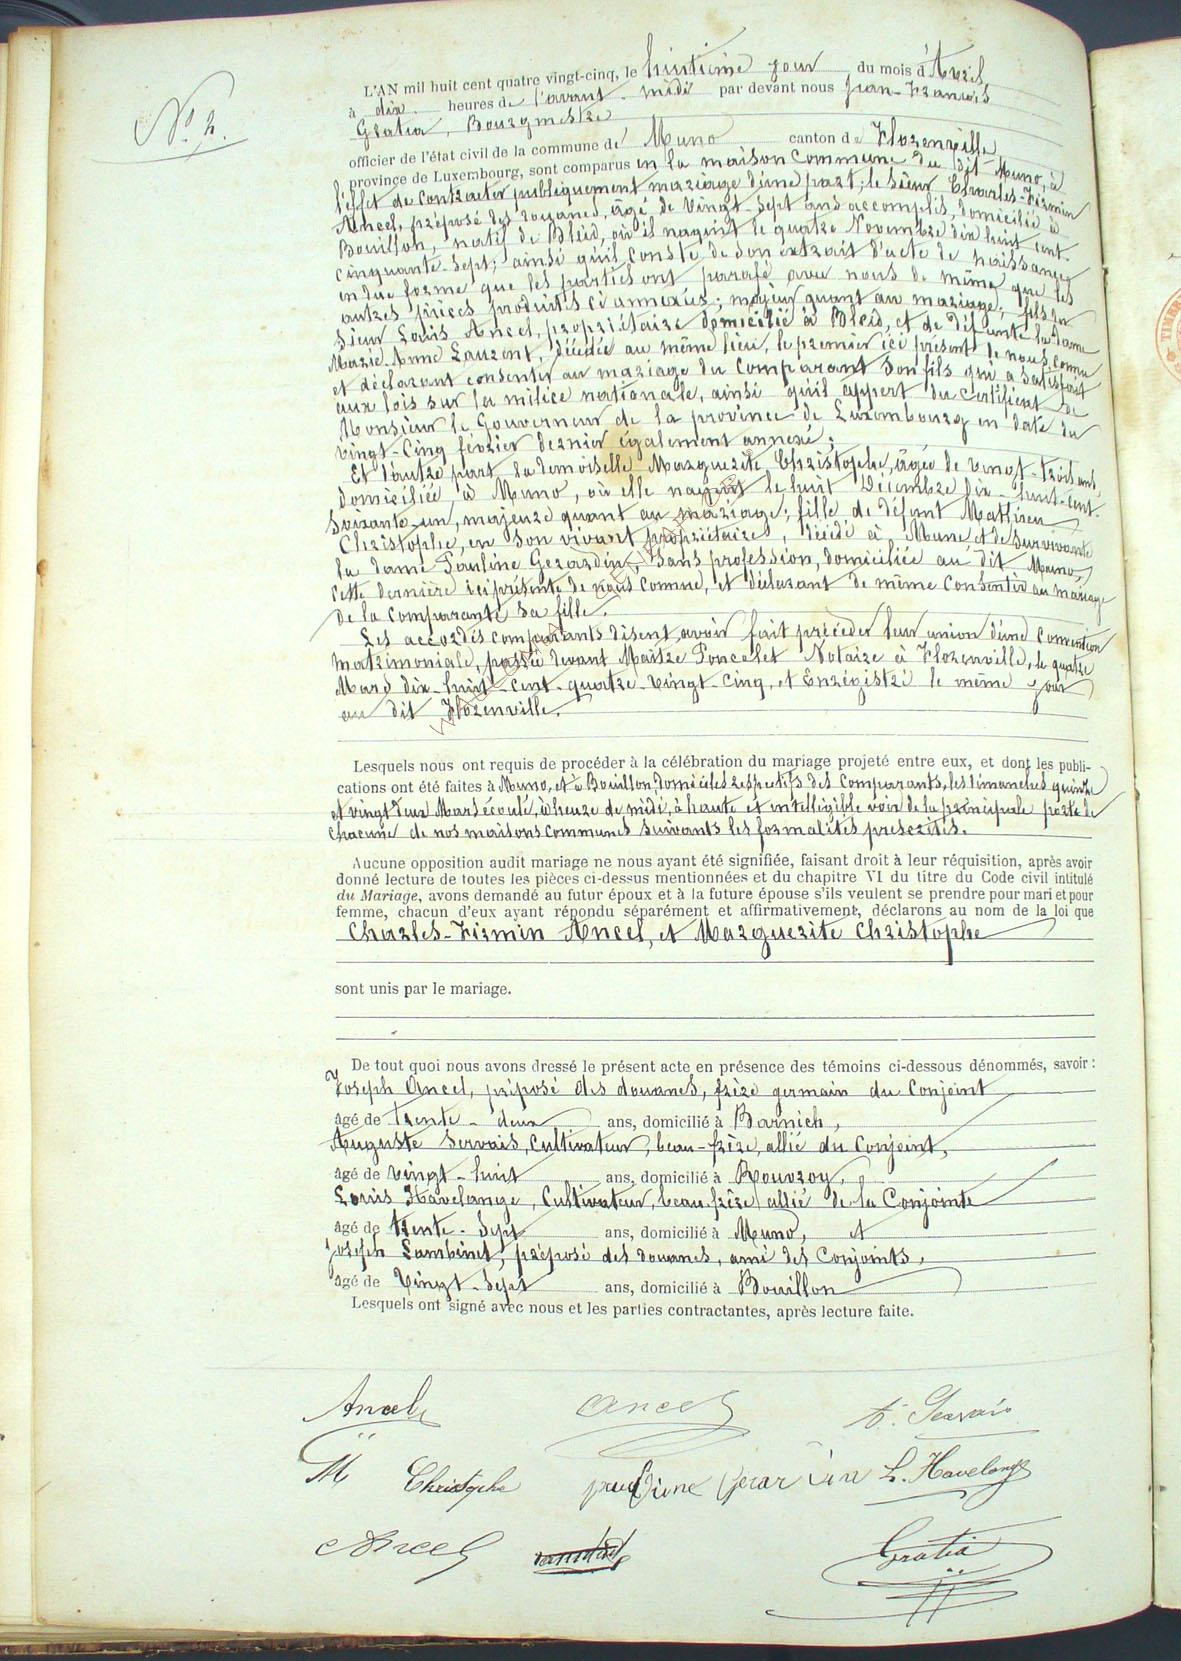 N° 2.
L'AN mil huit cent quatre vingt-cinq, le huitième jour du mois d'Avril
à dix heures de l'avant-midi par devant nous Jean-François
Gratia, Bourgmestre
officier de l'état civil de la commune de Muno canton de Florenville
province de Luxembourg, sont comparus en la maison commune du dit Muno, à
l'effet de contracter publiquement mariage d'une part; le sieur Charles-Firmin
Ancel, préposé des douanes, âgé de vingt-sept ans accomplis, domicilié à
Bouillon, natif de Bleid, où il naquit le quatre Novembre dix huit cent
cinquante-sept; ainsi qu'il conste de son extrait d'acte de naissance
en due forme que les parties ont parafé avec nous de même que les
autres pièces produites ci annexées; majeur quant au mariage; fils du
sieur Louis Ancel, propriétaire domicilié à Bleid, et de défunte la dame
Marie-Anne Laurent, décédée au même lieu, le premier ici présent de nous connu
et déclarant consentir au mariage du comparant son fils qui a satisfait
aux lois sur la milice nationale, ainsi qu'il appert du certificat de
Monsieur le Gouverneur de la province de Luxembourg en date du
vingt-cinq février dernier également annexé;
Et d'autre part la demoiselle Marguerite Christophe, âgée de vingt-trois ans,
domiciliée à Muno, où elle naquit le huit Décembre dix-huit-cent-
soixante-un, majeure quant au mariage; fille de défunt Mathieu
Christophe, en son vivant propriétaire, décédé à Muno et de survivante
la dame Pauline Gerardin, sans profession, domiciliée au dit Muno,
cette dernière ici présente de nous connue, et déclarant de même consentir au mariage
de la comparante sa fille.
Les accordés comparants disent avoir fait précéder leur union d'une convention
matrimoniale, passée devant Maître Poncelet Notaire à Florenville, le quatre
Mars dix-huit-cent-quatre-vingt-cinq, et Enrégistré le même jour
au dit Florenville.
Lesquels nous ont requis de procéder à la célébration du mariage projeté entre eux, et dont les publi-
cations ont été faites à Muno, et à Bouillon, domiciles respectifs des comparants, les dimanches quinze
et vingt deux Mars écoulé, à heure de midi, à haute et intelligible voix de la principale porte de
chacune de nos maisons communes suivants les formalités prescrites.
Aucune opposition audit mariage ne nous ayant été signifiée, faisant droit à leur réquisition, après avoir
donné lecture de toutes les pièces ci-dessus mentionnées et du chapitre VI du titre du Code civil intitulé
du Mariage, avons demandé au futur époux et à la future épouse s'ils veulent se prendre pour mari et pour
femme, chacun d'eux ayant répondu séparément et affirmativement, déclarons au nom de la loi que
Charles-Firmin Ancel, et Marguerite Christophe
sont unis par le mariage.
De tout quoi nous avons dressé le présent acte en présence des témoins ci-dessous dénommés, savoir :
Joseph Ancel, préposé des douanes, frère germain du Conjoint
âgé de trente-deux ans, domicilié à Barnich,
Auguste Servais, Cultivateur, beau-frère, allié du Conjoint,
âgé de vingt-huit ans, domicilié à Rouvroy,
Louis Havelange, Cultivateur, beau frère, allié de la Conjointe
âgé de trente-sept ans, domicilié à Muno, et
Joseph Lambinet, préposé des douanes, ami des Conjoints,
âgé de Vingt-sept ans, domicilié à Bouillon
Lesquels ont signé avec nous et les parties contractantes, après lecture faite.
Ancel Ancel A. Servais
M Christophe pauline Gerardin L. Havelange
Ancel Gratia